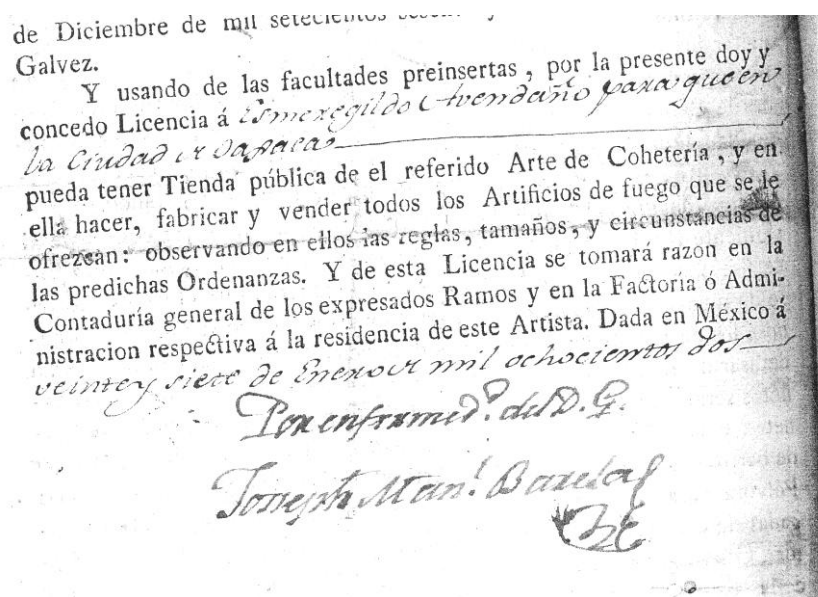 de Diciembre de mil setecientos
Galvez.
Y usando de las facultades preinsertas, por la presente doy y
concedo Licencia á Esmeregildo Avendaño para que en
la Ciudad de Oaxaca
pueda tener Tienda pública de el referido Arte de Cohetería, y en
ella hacer, fabricar y vender todos los Artificios de fuego que se le
ofrezcan: observando en ellos las reglas, tamaños, y circunstancias de
las predichas Ordenanzas. Y de esta Licencia se tomará razon en la
Contaduría general de los expresados Ramos y en la Factoría ó Admi-
nistracion respectiva á la residencia de este Artista. Dada en México á
veinte y siete de Enero de mil ochocientos dos
Por enfermed.ᵈ del D. G.
Josseph Man.ˡ